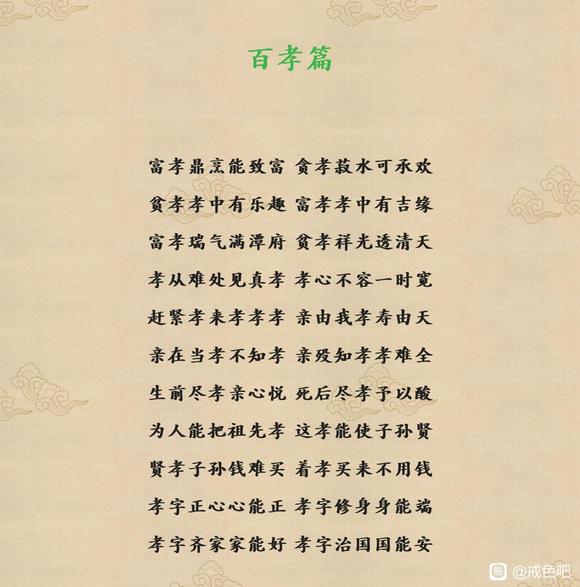 百孝篇
富孝鼎烹能致富 贪孝菽水可承欢
贫孝孝中有乐趣 富孝孝中有吉缘
富孝瑞气满潭府 贫孝祥光透清天
孝从难处见真孝 孝心不容一时宽
赶紧孝来孝孝孝 亲由我孝寿由天
亲在当孝不知孝 亲殁知孝孝难全
生前尽孝亲心悦 死后尽孝予以酸
为人能把祖先孝 这孝能使子孙贤
贤孝子孙钱难买 着孝买来不用钱
孝字正心心能正 孝字修身身能端
孝字齐家家能好 孝字治国国能安
贴 @戒色吧